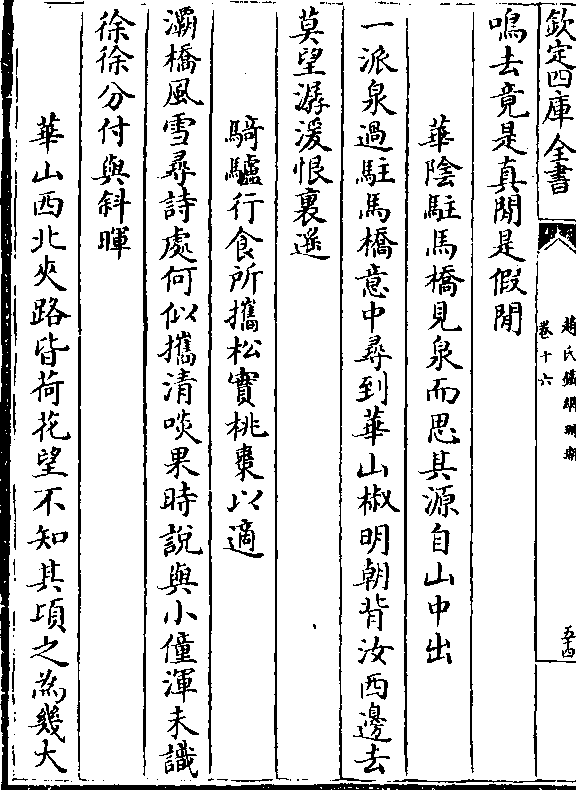 欽定四庫全書
趙氏鐵網珊瑚
卷十六
五十四
鳴去竟是真閒是假閒
華陰駐馬橋見泉而思其源自山中出
一派泉過駐馬橋意中尋到華山椒明朝背汝西邊去
莫望潺湲恨裏遥
騎驢行食所攜松實桃棗以適
灞橋風雪尋詩處何似攜清啖果時說與小僮渾未識
徐徐分付與斜暉
華山西北夾路皆荷花望不知其頃之為幾大